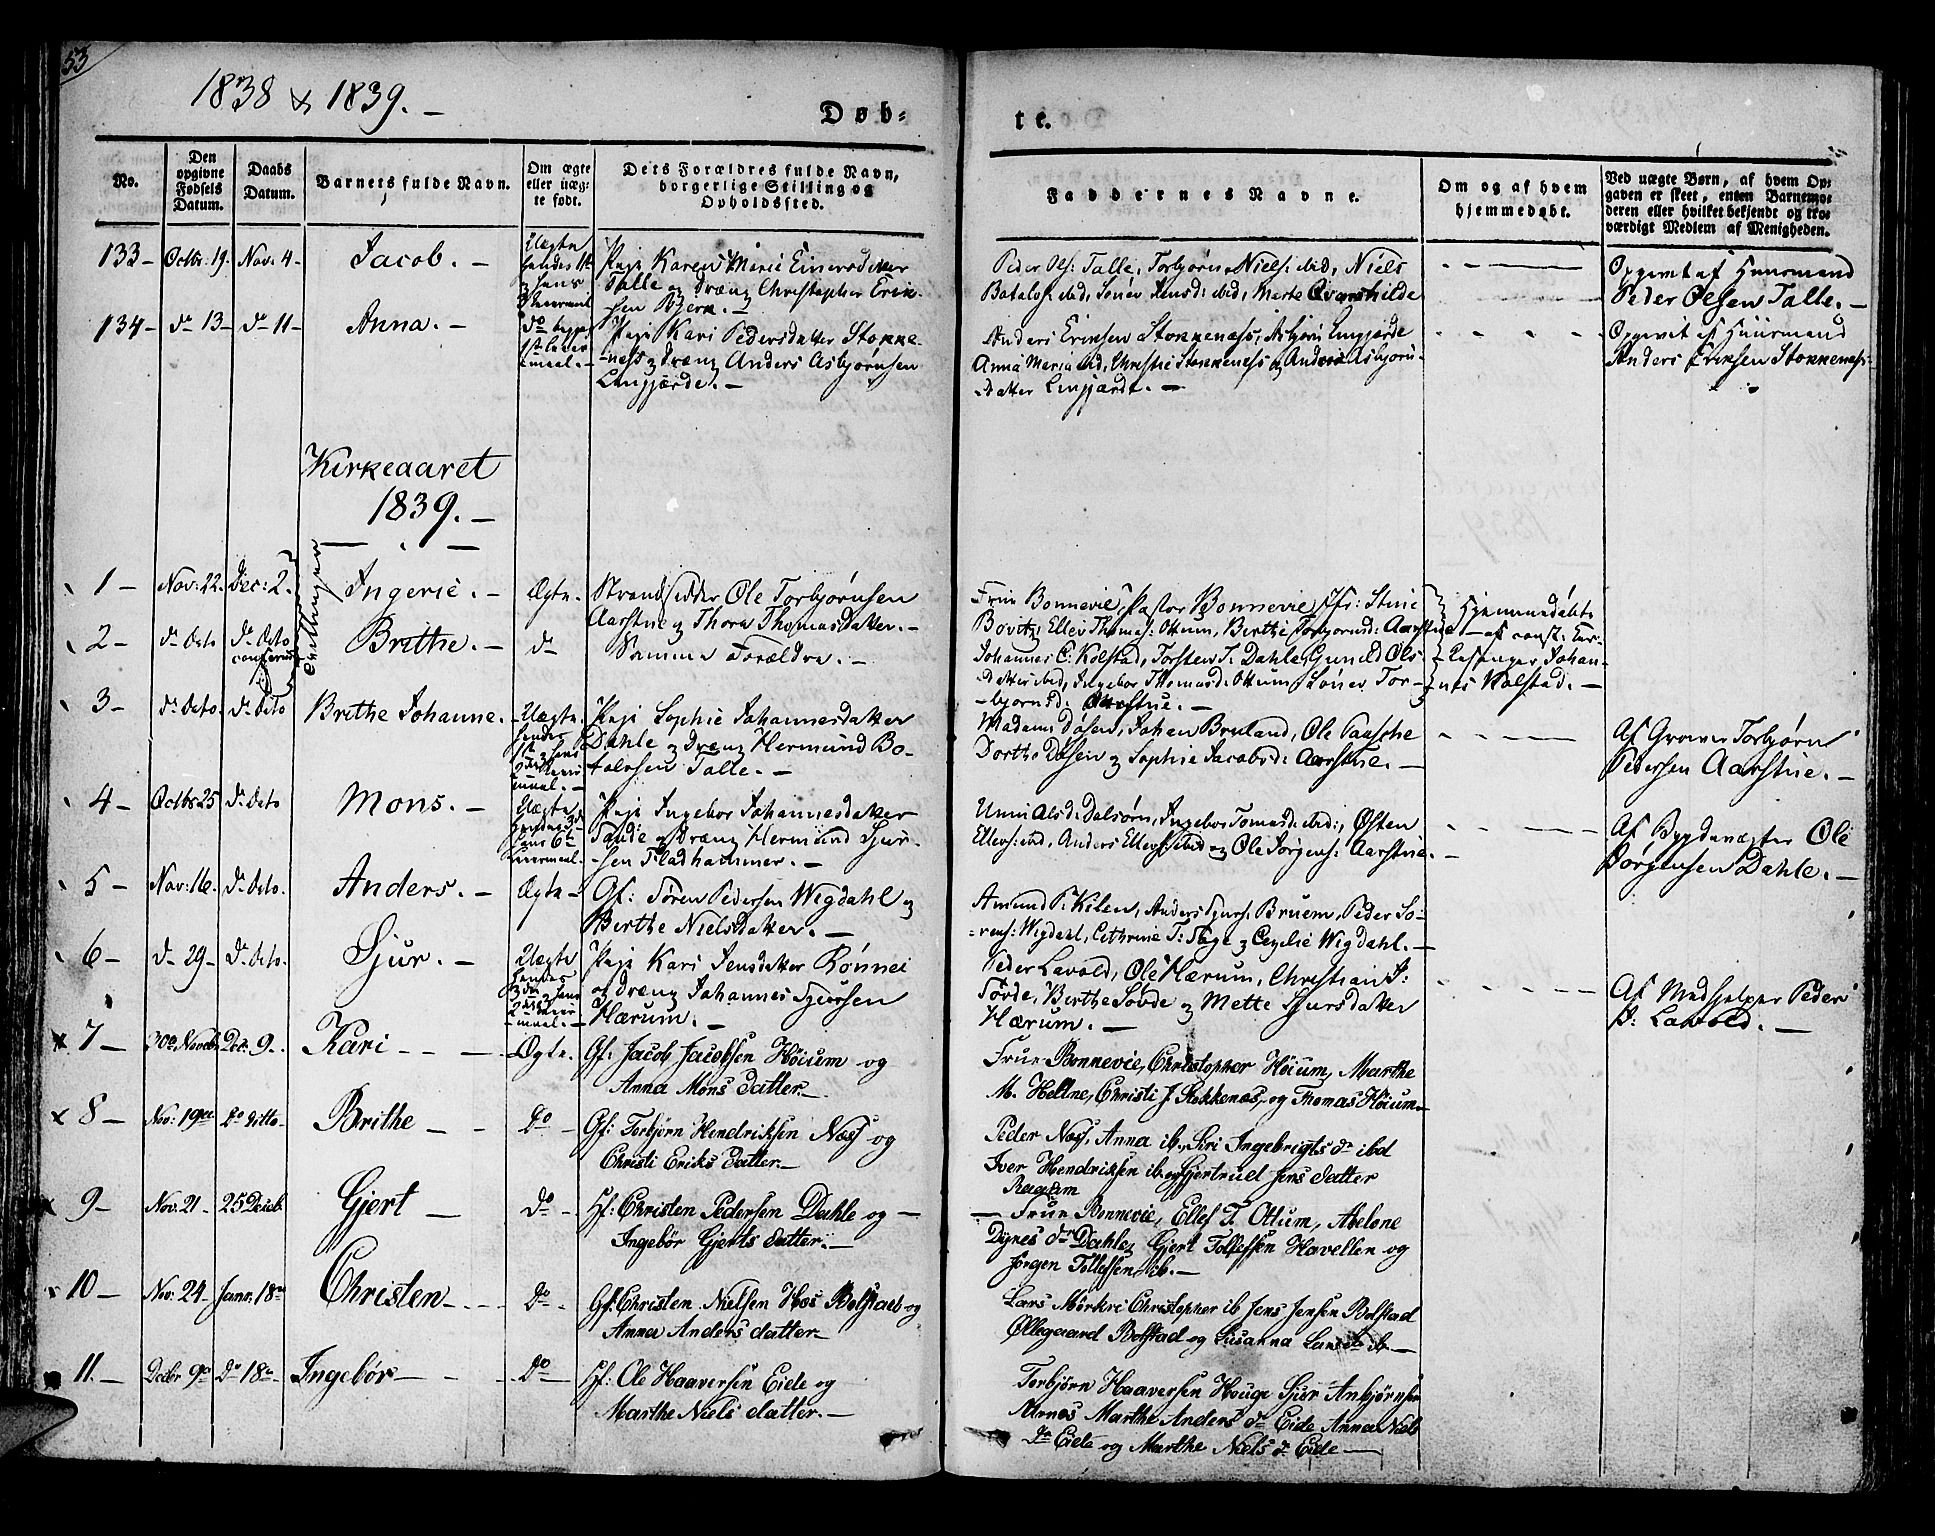 53
1838 & 1839. —
Døb-
te.
No.
Den opgivne Fødsels Datum.
Daabs Datum.
Barnets fulde Navn.
Om ægte eller uægte født.
Dets Forældres fulde Navn, borgerlige Stilling og Opholdssted.
Faddernes Navne.
Om og af hvem hjemmedøbt.
Ved uægte Børn, af hvem Opgaven er skeet, enten Barnemoderen eller hvilket bekjendt og troværdigt Medlem af Menigheden.
133 — Octbr: 19. Nov: 4 — Jacob. — Uægte
Pige Karen Marie Einersdatter
Talle og Dreng Christopher Erik-
sen Bjerk. —
Peder Ols: Talle, Torbjørn Niels: ibid, Niels
Batalf: ibid, Sønev Jensd: ibid, Marte Qvamshilde
Opgivet af Huusmand
Peder Olsen Talle. —
134 — do 13 — do 11 — Anna. — do
Pige Kari Pedersdatter Stokke-
næss og Dreng Anders Asbjørnsen
Lingjærde. —
Anders Eriksen Stokkenæss, Asbjørn Lingjærde
Anna Maria ibid, Christie Stokkenæss og Anders Asbjørn
Datter Lingjærde. —
Opgivet af Huusmand
Anders Eriksen Stokkenæss.
Kirkeaaret
1839. —
Tvillinger
1 — Nov: 22. Dec: 2. Ingerie. — Ægte.
Strandsidder Ole Torbjørnsen
Aarstue og Thora Thomasdatter. —
Frue Bonnevie, Pastor Bonnevie, Jfr: Stine
Bovitz, Ellev Thomas: Ottum, Berthe Torbjørnsd: Aarstue
Hjemmedøbte
af const: Kir-
kesanger Johan-
nes Kolstad. —
2 — do dito do dito Brithe. — do
Samme Forældre. —
Johannes E: Kolstad, Torsten T. Dahle, Gunild Ols-
Datter ibid, Ingebor Thomasd: Ottum, Sønev Tor-
bjørnsd: Aarstue. —
3 — do dito. do dito Brithe Johanne. — Uægte.
Pige Sophie Johannesdatter
Dahle og Dreng Hermund Bo-
tolvsen Talle. —
Madam Døsen, Johan Broland, Ole Paasche
Dorthe Døsen og Sophie Jacobsd: Aarstue. —
Af Graver Torbjørn
Pedersen Aarstue. —
4 — Octbr 25 do dito Mons. — Uægte
Pige Ingebor Johannesdatter
Sande og Dreng Hermund Sjur-
sen Fladhammer. —
Unni Alsd: Dalsørn, Ingebor Tomasd: ibid:, Østen
Ellevs: ibid, Anders Ellevs: ibid og Ole Jørgens: Aarstue. —
Af Bygdevægter Ole
Jørgensen Dahle. —
5 — Nov: 16. do dito. Anders. — Ægte —
Gf: Søren Pedersen Wigdahl og
Berthe Nielsdatter. —
Amund P: Kilen, Anders Sjurs: Bruem, Peder Sø-
rens: Wigdahl, Cethrine T: Fløge og Cecilie Wigdahl. —
6 — do 29 — do dito. Sjur. — Uægte
Pige Kari Jensdatter Rønnei
og Dreng Johannes Sjursen
Hærum. —
Peder Lavold, Ole Hærum, Christian J:
Sørde, Berthe Sørde og Mette Sjursdatter
Hærum. —
Af Medhjelper Peder
P: Lavold. —
7 — 30te Novebr Dec: 9. Kari — — — Ægte.
Gf: Jacob Jacobsen Höium og
Anna Mons datter. —
Frue Bonnevie, Christopher Höium, Marthe
M. Heltne, Christi J. Stokkenæs, og Thomas Höium
8 — Nov: 19de Do ditto — Brithe — — Do —
Gf: Torbjörn Hendriksen Næss og
Christi Eriks datter. —
Peder Næss, Anna ib., Siri Ingebrigts dr ibd
Iver Hendriksen ib. og Gjertrud Jens datter
9 — Nov. 21 — 25 Deceb. Gjert — Do —
Hf: Christen Pedersen Dahle og —
Ingebör Gjerts datter. —
— Frue Bonnevie, Ellef T. Ottum, Abelone
Dynes dr Dahle, Gjert Tollefsen Havellen og
Jörgen Tollefsen ib. —
10 — Nov. 24 — Janr: 18de Christen — — Do —
Gf: Christen Nielsen Hos Bolstad og
Anna Anders datter —
Lars Mörkri Christopher ib Jens Jensen Bolstad
Øllegaard Bolstad og Susanna Lars dr ib. —
11. — Decbr 9de Do 18de — Ingebör — — — Do —
Hf: Ole Haaversen Eide og
Marthe Niels datter. —
Torbjörn Haaversen Houge Sjur Anbjörnsen
Marthe Anders dr Eide Anna Niels
dr Eide og Marthe Niels dr Eide —